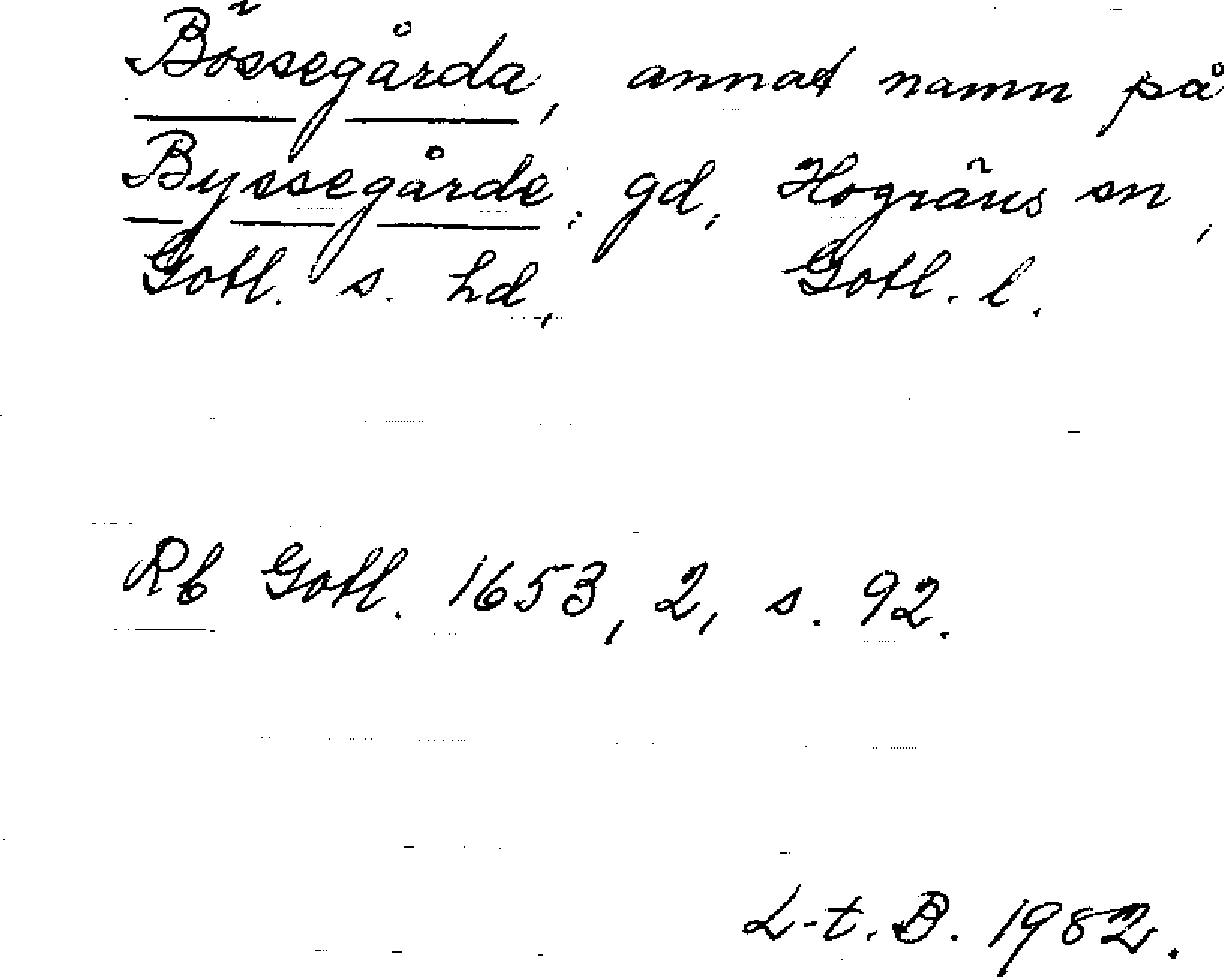 Bössegårda, annat namn på
Byssegårde, gd, Hogräns sn,
Gotl. s. hd, Gotl. l.
Rb Gotl. 1653, 2, s. 92.
L-t. B. 1982.